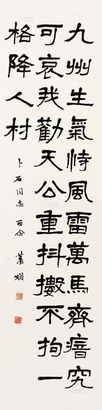 九州生氣恃風雷萬馬齊瘖究
可哀我勸天公重抖擻不拘一
格降人材
卜石同志 蕭嫻